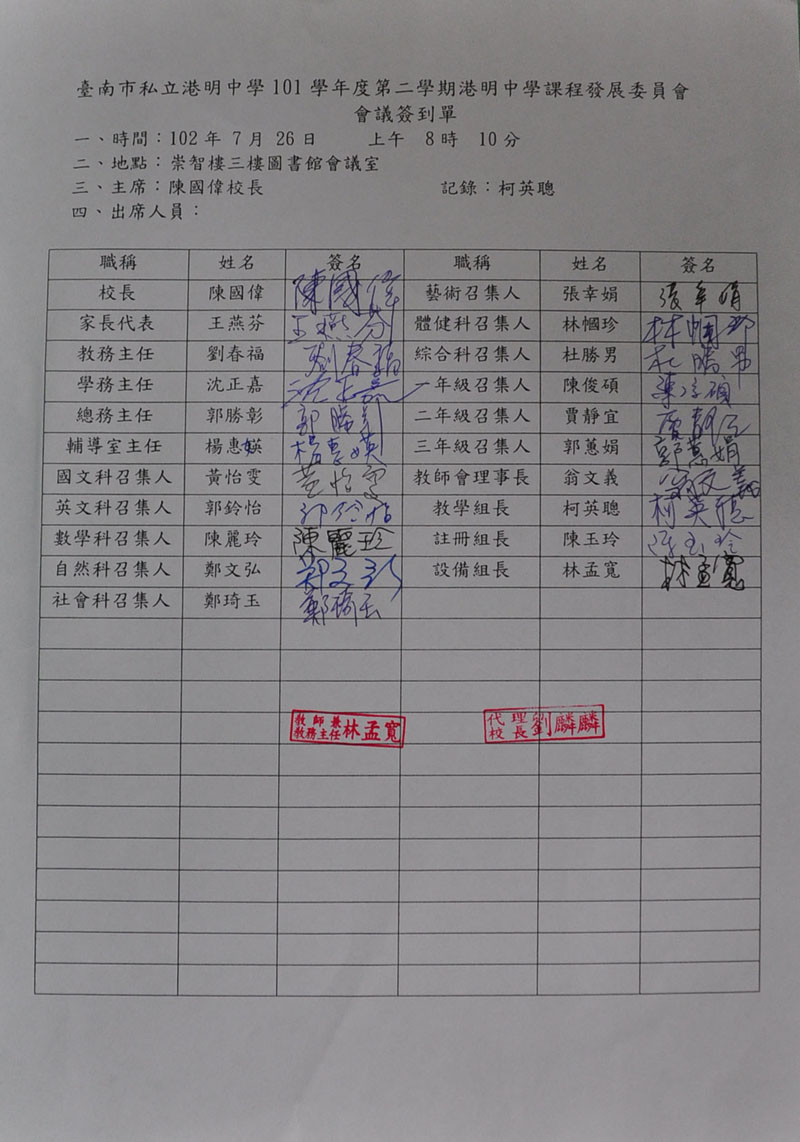 臺南市私立港明中學101學年度第二學期港明中學課程發展委員會
會議簽到單
一、時間：102年 7月 26日 上午 8時 10分
二、地點：崇智樓三樓圖書館會議室
三、主席：陳國偉校長 記錄：柯英聰
四、出席人員：
職稱 姓名 簽名 職稱 姓名 簽名
校長 陳國偉 陳國偉 藝術召集人 張幸娟 張幸娟
家長代表 王燕芬 王燕芬 體健科召集人 林幗珍 林幗珍
教務主任 劉春福 劉春福 綜合科召集人 杜勝男 杜勝男
學務主任 沈正嘉 沈正嘉 一年級召集人 陳俊碩 陳俊碩
總務主任 郭勝彰 郭勝彰 二年級召集人 賈靜宜 賈靜宜
輔導室主任 楊惠媖 楊惠媖 三年級召集人 郭蕙娟 郭蕙娟
國文科召集人 黃怡雯 黃怡雯 教師會理事長 翁文義 翁文義
英文科召集人 郭鈴怡 郭鈴怡 教學組長 柯英聰 柯英聰
數學科召集人 陳麗玲 陳麗玲 註冊組長 陳玉玲 陳玉玲
自然科召集人 鄭文弘 鄭文弘 設備組長 林孟寬 林孟寬
社會科召集人 鄭琦玉 鄭琦玉
教師兼教務主任 林孟寬 代理校長 劉麟麟